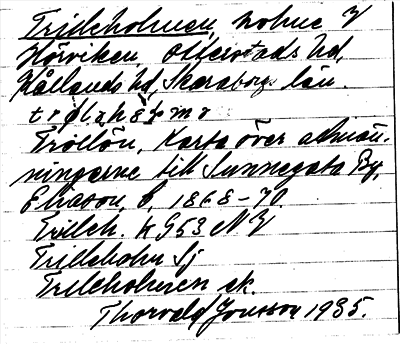 Trilleholmen, holme i
Hörviken, Otterstads sd,
Kållands hd, Skaraborgs län.
Trollön, Karta över almän-
ningarne till Sunnegata By,
Eliason b, 1868-70.
Trilleh. k G53 NV
Trilleholm Sj
Trilleholmen ek.
Thorvald Jonsson 1935.